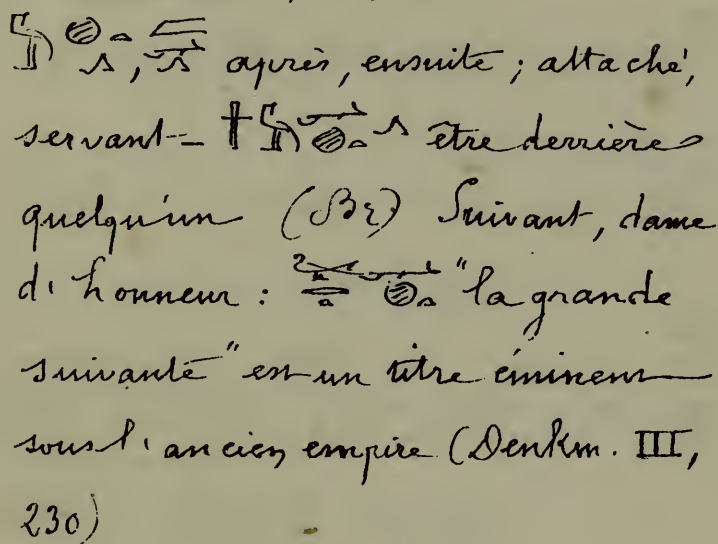 après, ensuite ; attaché,
servant — être derrière
quelqu'un (Br) Suivant, dame
d'honneur : "la grande
suivante" est un titre éminent
sous l'ancien empire (Denkm. III,
230)